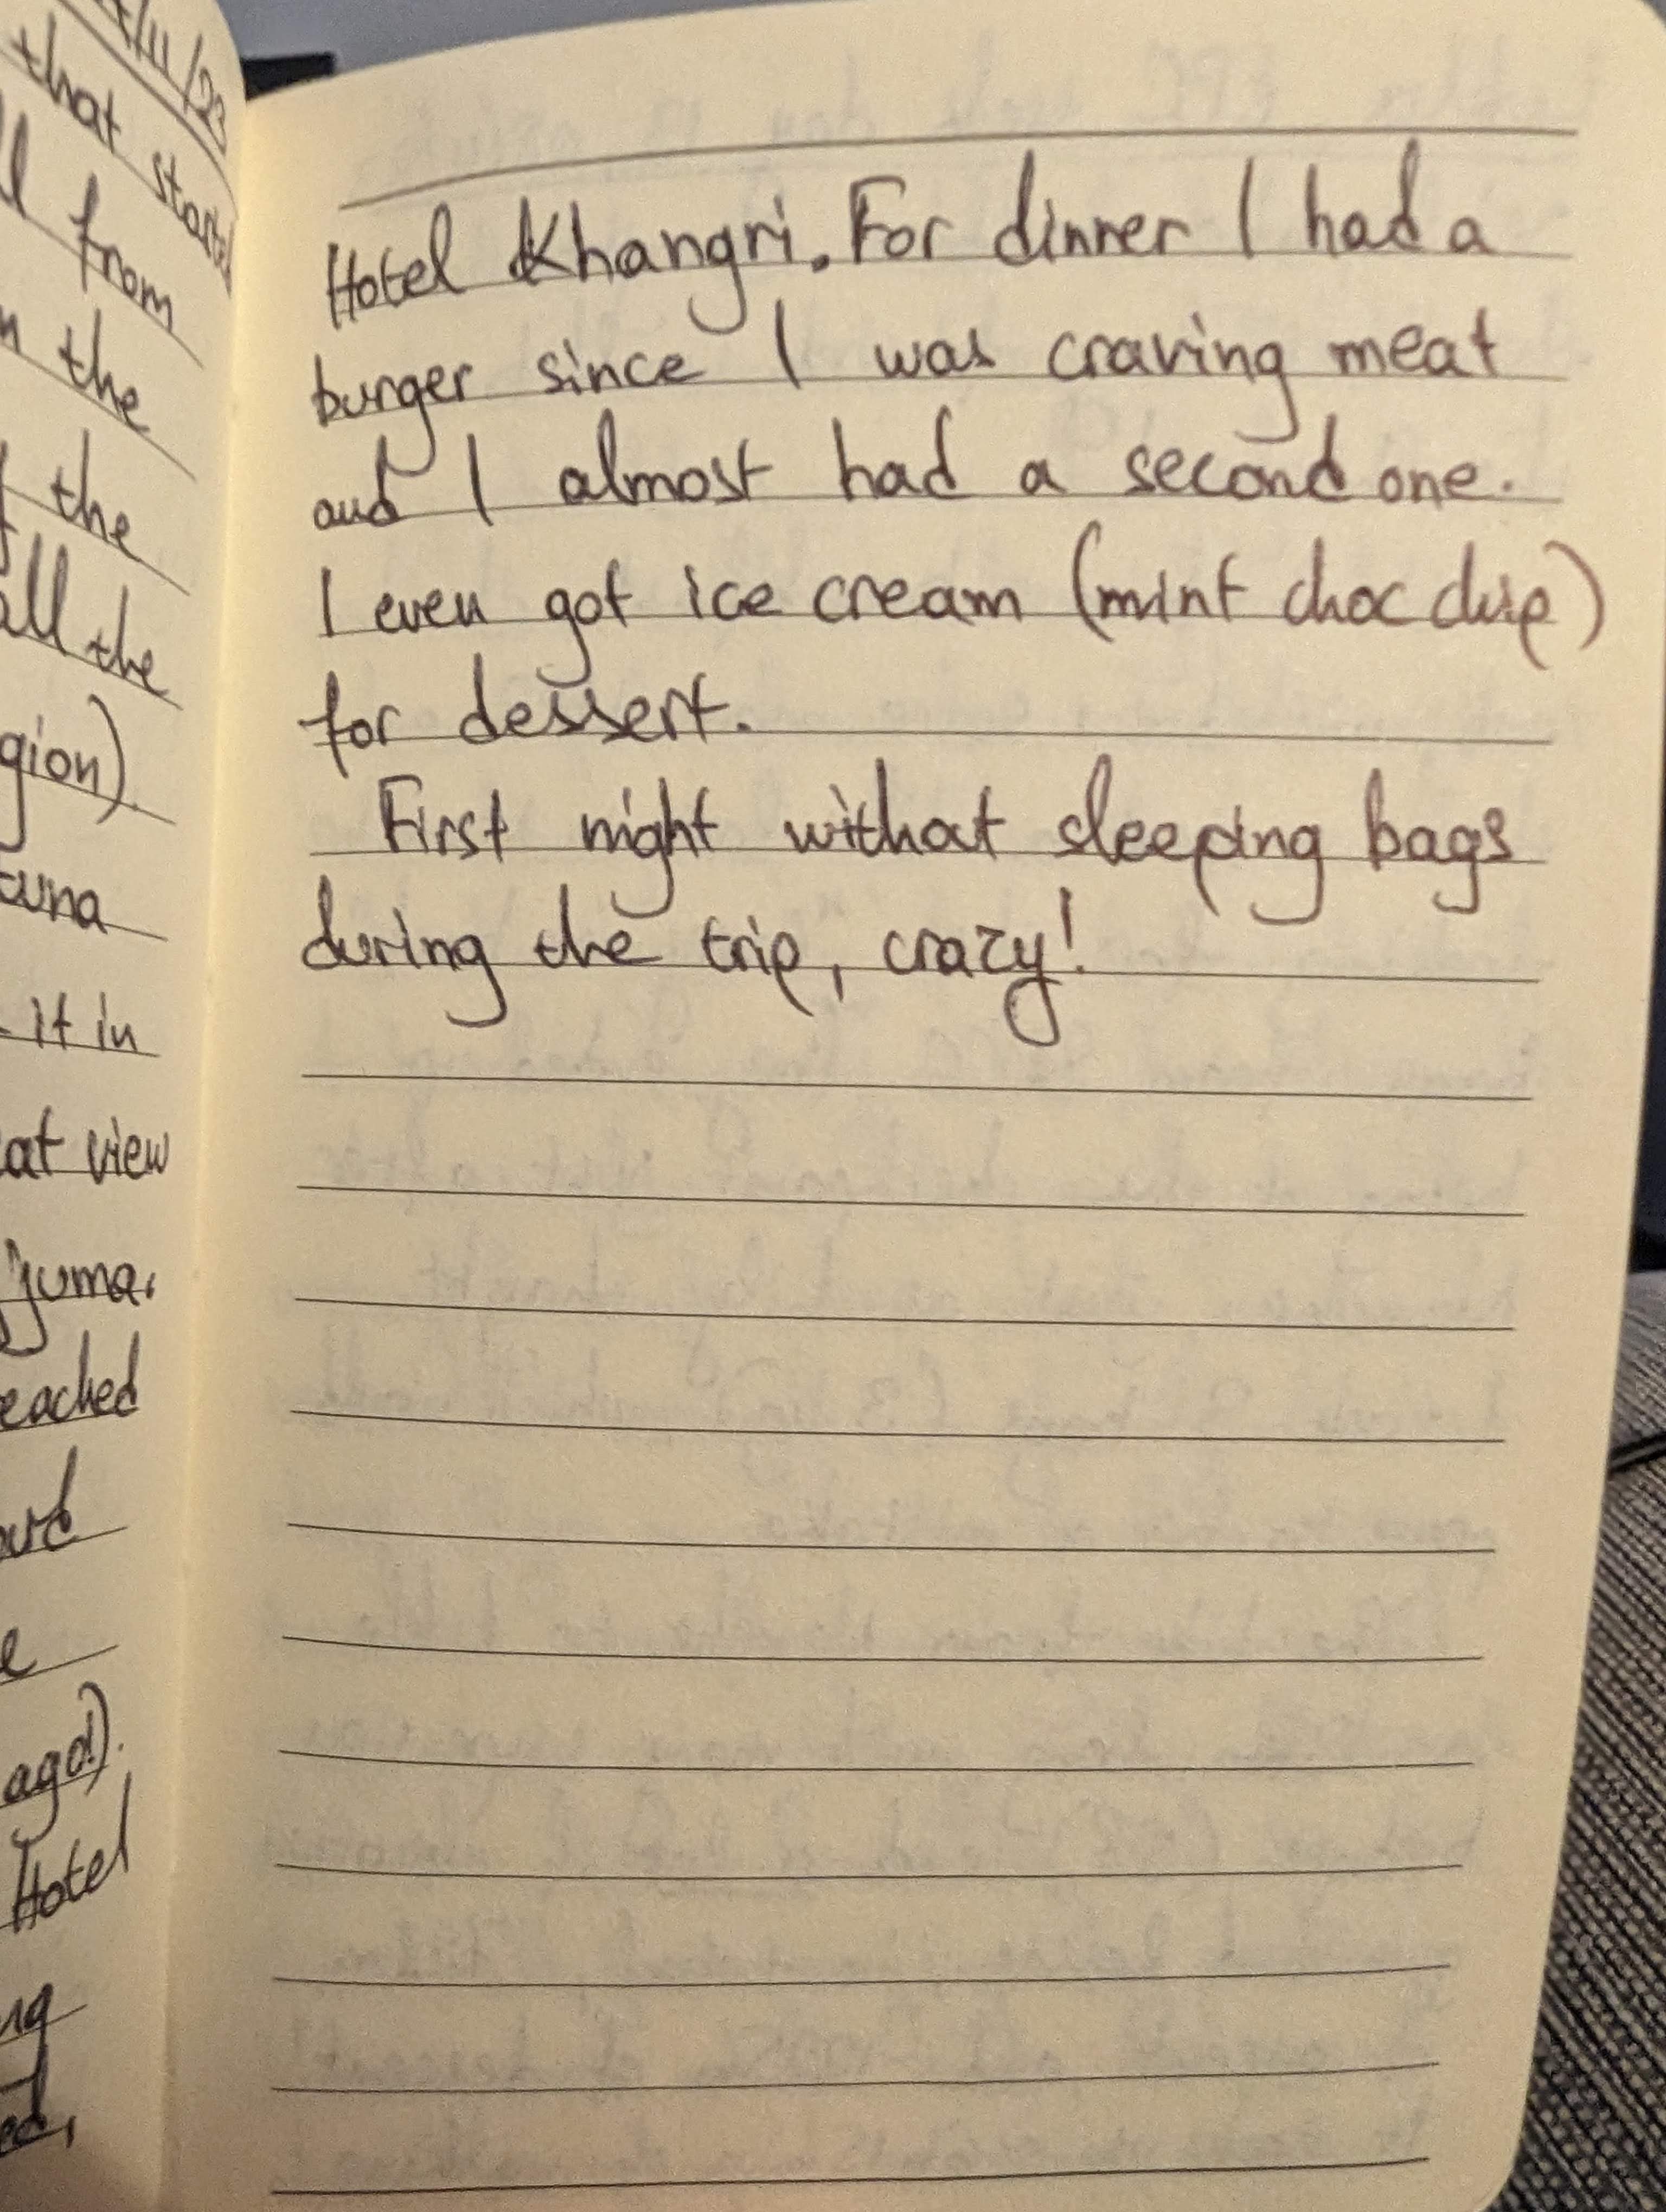 /11/23
that started
from
the
the
all the
gion).
tuna
it in
at view
juma.
eached
ago!).
Hotel
Hotel Khangri. For dinner I had a
burger since I was craving meat
and I almost had a second one.
I even got ice cream (mint choc chip)
for dessert.
First night without sleeping bags
during the trip, crazy!